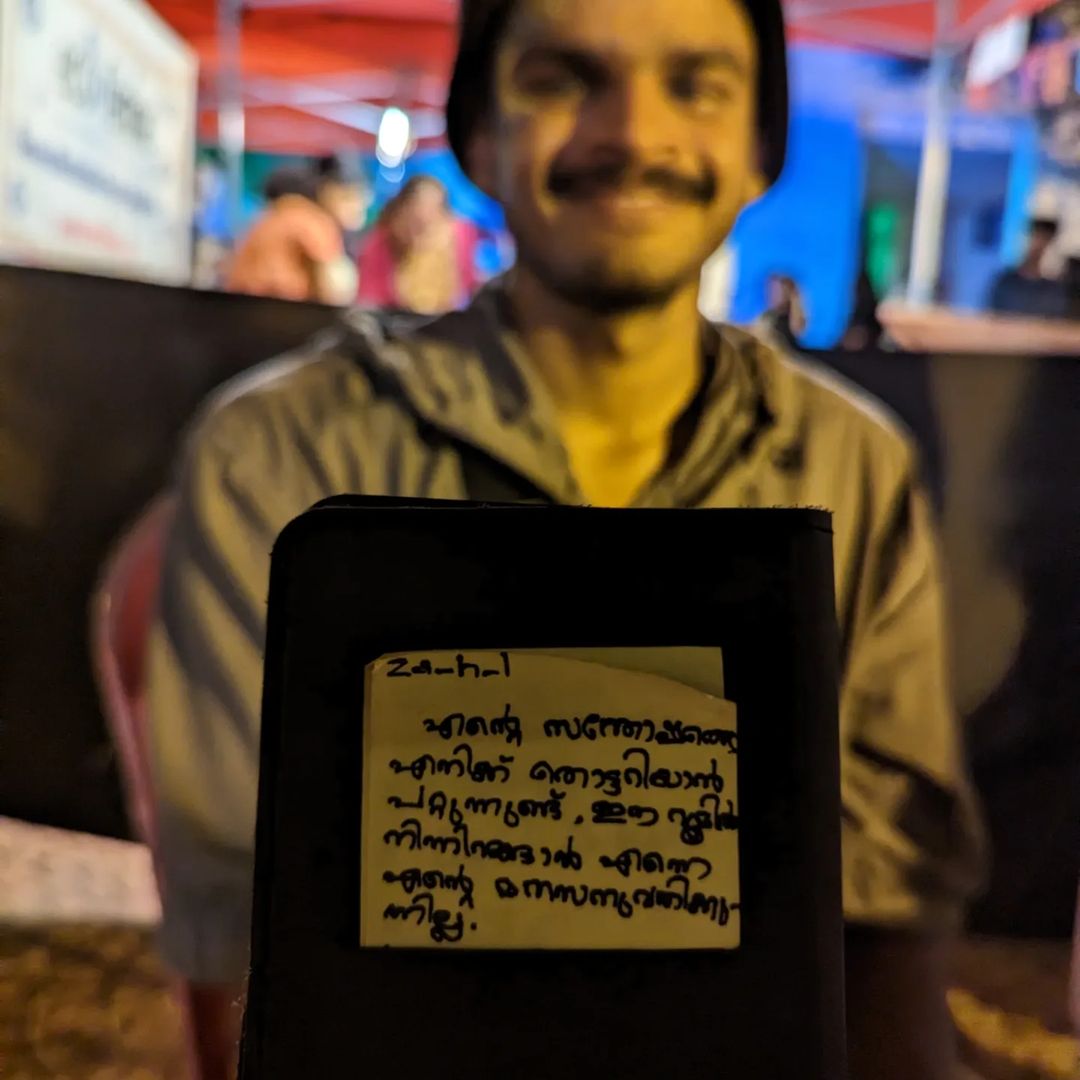 za_h_l
എന്റെ സന്തോഷങ്ങളെ
എനിക്ക് തൊട്ടറിയാൻ
പറ്റുന്നുണ്ട്. ഈ റൂമിൽ
നിന്നിറങ്ങാൻ എന്നെ
എന്റെ മനസനുവദിക്കു-
ന്നില്ല.